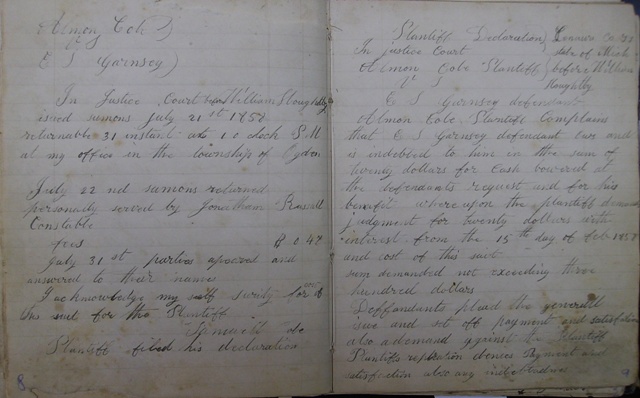 Almon Cole
vs
E S Garnsey
In Justice Court before William Sloughtby
issued sumons July 21 st 1858
returnable 31 instant at 1 o clock P M
at my office in the township of Ogden
July 22 nd sumons returned
personaly served by Jonathan Russell
Constable
fees $ 0.48
July 31 st parties apeared and
answered to their name
I acknowledge my self surity for
the suit for the Plaintiff
Plaintiff filed his declaration
8
Plaintiff Declaration
In justice Court
Almon Cole Plaintiff before William
vs
E S Garnsey defendant
Almon Cole, Plaintiff Complains
that E S Garnsey defendant owes and
is indebted to him in the sum of
twenty dollars for Cash borowed at
the defendants request and for his
benefit where upon the plaintiff demands
judgment for twenty dollars with
interest from the 15 th day of Feb 1858
and cost of this suit
sum demanded not exceding three
hundred dollars
Deffendants plead the generall
isue and set off payment and satisfaction
also a demand against the Plaintiff
Plaintiffs denies Payment and
satisfaction also any indebtedness
9